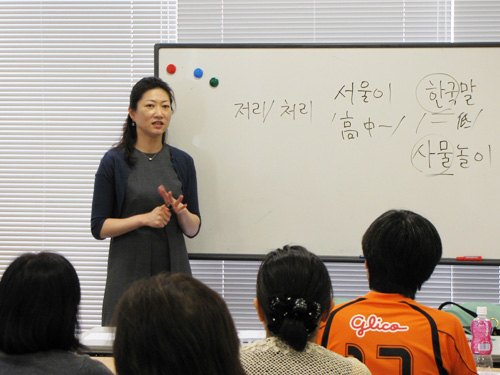 서울이 한국말
저리/처리 /高中ー/ /二低/
사물놀이
glico